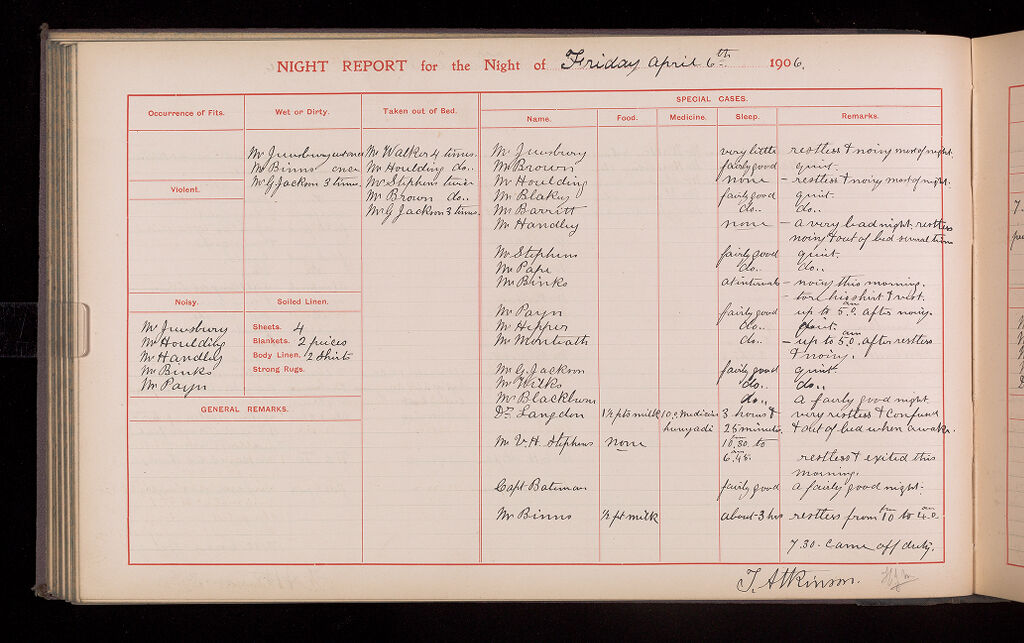 NIGHT REPORT for the Night of Friday April 6th 1906.
Occurrence of Fits.
Wet or Dirty.
Mr Jewsbury
Mr Binns once
Mr G Jackson 3 times.
Taken out of Bed.
Mr Walker 4 times.
Mr Houlding do..
Mr Stephens twice
Mr Brown do..
Mr G Jackson 3 times.
Violent.
Noisy.
Mr Jewsbury
Mr Houlding
Mr Handley
Mr Binks
Mr Payn
Soiled Linen.
Sheets. 4
Blankets. 2 pieces
Body Linen. 2 Shirts
Strong Rugs.
GENERAL REMARKS.
SPECIAL CASES.
Name. Food. Medicine. Sleep. Remarks.
Mr Jewsbury very little restless & noisy most of night.
Mr Brown fairly good quiet.
Mr Houlding none – restless & noisy most of night.
Mr Blakey fairly good quiet.
Mr Barritt do.. do..
Mr Handley none – a very bad night. restless
noisy & out of bed several times
Mr Stephens fairly good quiet.
Mr Pape do.. do..
Mr Binks at intervals – noisy this morning.
– tore his shirt & vest.
Mr Payn fairly good up to 5.0 am after noisy.
Mr Hipper do.. quiet.
Mr Monteath do.. – up to 5.0 am after restless
& noisy.
Mr G. Jackson fairly good quiet.
Mr Wilks do.. do..
Mr Blackburn do.. a fairly good night
Dr Langdon 1½ pts milk 10.0 Medicine 3 hours & very restless & confused
hunyadi 25 minutes & out of bed when awake.
Mr V. H. Stephens none 10.30 to
6.45 am restless & exited this
morning.
Capt Bateman fairly good a fairly good night.
Mr Binns ½ pt milk about 3 hrs restless from 10 pm to 4.0 am
7.30. came off duty.
T. Atkinson.